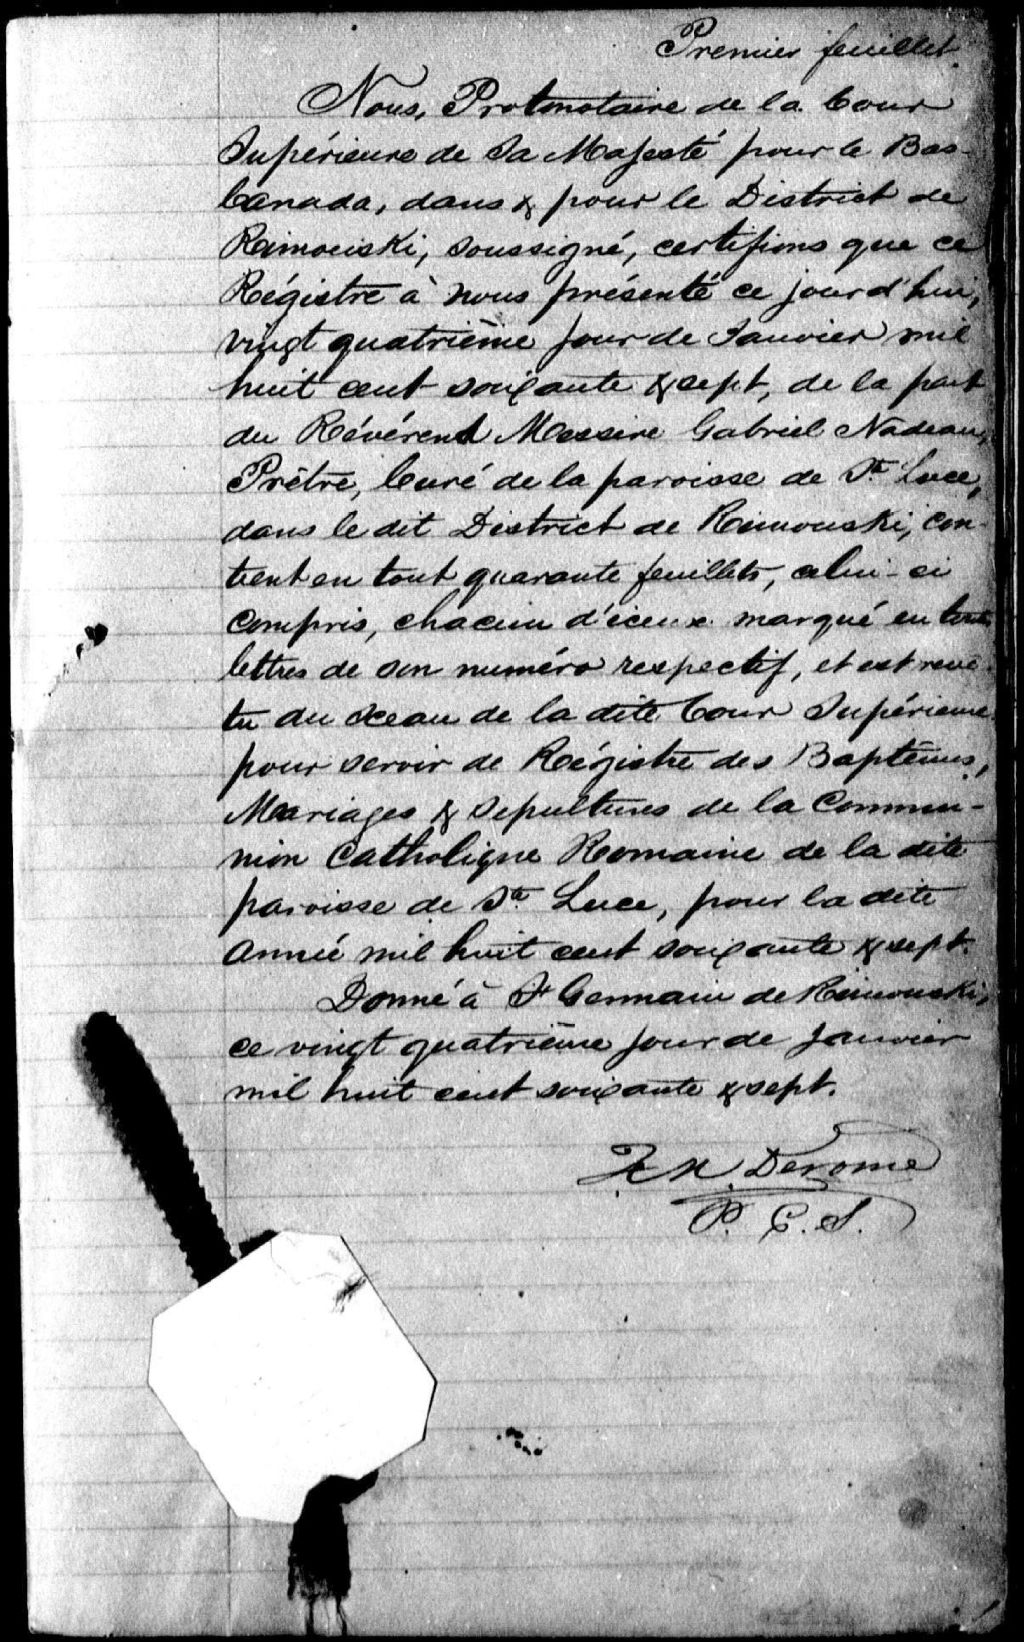 Premier feuillet.
Nous, Protonotaire de la Cour
Supérieure de Sa Majesté pour le Bas-
Canada, dans & pour le District de
Rimouski, soussigné, certifions que ce
Régistre à nous présenté ce jourd'hui,
vingt quatrième jour de Janvier mil
huit cent soixante & sept, de la part
du Révérend Messire Gabriel Nadeau,
Prêtre, Curé de la paroisse de Ste Luce,
dans le dit District de Rimouski, con-
tient en tout quarante feuillets, celui-ci
compris, chacun d'iceux marqué en toute
lettres de son numéro respectif, et est revê-
tu du sceau de la dite Cour Supérieure
pour servir de Régistre des Baptêmes,
Mariages & Sepultures de la Commu-
nion Catholique Romaine de la dite
paroisse de Ste Luce, pour la dite
année mil huit cent soixante & sept.
Donné à St Germain de Rimouski,
ce vingt quatrième jour de Janvier
mil huit cent soixante & sept.
Derome
P. C. S.